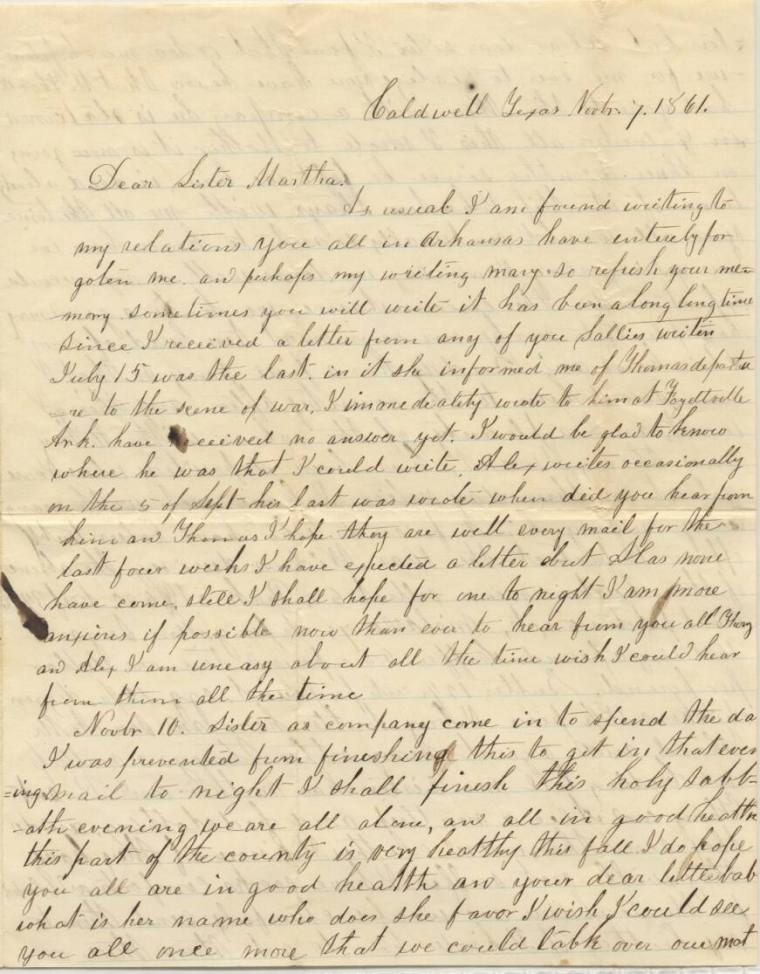 Caldwell Texas Novbr 7. 1861.
Dear Sister Martha.
As usual I am found writing to
my relations you all in Arkansas have entirely for
goten me. and perhaps my writing may so refresh your me=
mory sometimes you will write it has been a long long time
since I received a letter from any of you Sallies writen
July 15 was the last. in it she informed me of Thomas departu
re to the scene of war, I immedeatily wrote to him at
Ark. have received no answer yet. I would be glad to know
where he was that I could write. Alex writes occasionally
on the 5 of Sept his last was wrote when did you hear from
him an Thomas I hope they are well every mail for the
last four weeks I have expected a letter but Alas none
have come, still I shall hope for one to night I am more
anxious if possible now than ever to hear from you all Thom
an Alex I am uneasy about all the time wish I could hear
from them all the time
Novbr 10. Sister as company come in to spend the da
I was prevented from fineshing this to get in that even
=ing mail to night I shall finesh this holy sabb=
=ath evening we are all alone, an all in good health
this part of the county is very healthy this fall I do hope
you all are in good health an your dear little bab
what is her name who does she favor I wish I could see
you all once more that we could talk over our mot